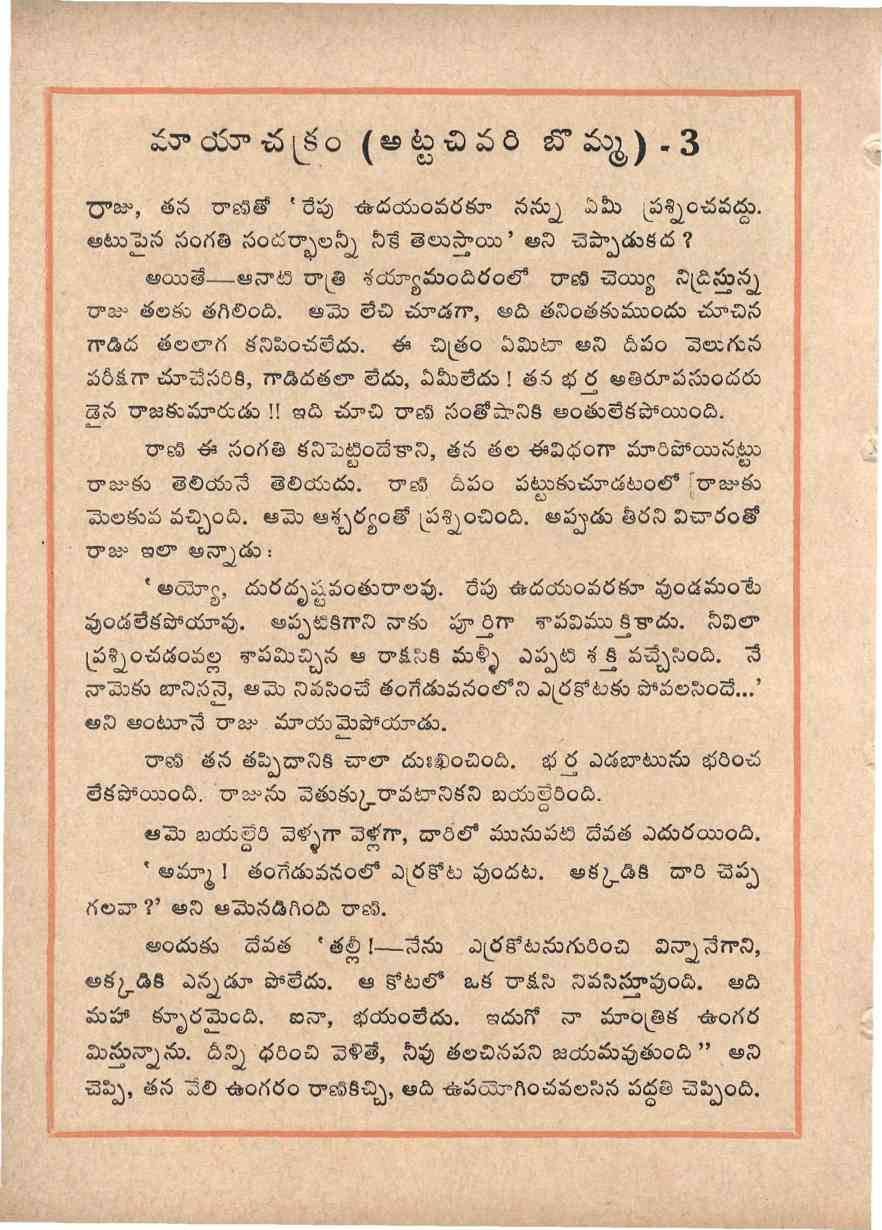 మాయాచక్రం (అట్టచివరి బొమ్మ) - 3
రాజు, తన రాణితో ‘రేపు ఉదయంవరకూ నన్ను ఏమీ ప్రశ్నించవద్దు.
అటుపైన సంగతి సందర్భాలన్నీ నీకే తెలుస్తాయి’ అని చెప్పాడుకద ?
అయితే—ఆనాటి రాత్రి శయ్యామందిరంలో రాణి చెయ్యి నిద్రిస్తున్న
రాజు తలకు తగిలింది. ఆమె లేచి చూడగా, అది తనింతకుముందు చూచిన
గాడిద తలలాగ కనిపించలేదు. ఈ చిత్రం ఏమిటా అని దీపం వెలుగున
పరీక్షగా చూచేసరికి, గాడిదతలా లేదు, ఏమీలేదు ! తన భర్త అతిరూపసుందరు
డైన రాజకుమారుడు !! ఇది చూచి రాణి సంతోషానికి అంతులేకపోయింది.
రాణి ఈ సంగతి కనిపెట్టిందేకాని, తన తల ఈవిధంగా మారిపోయినట్టు
రాజుకు తెలియనే తెలియదు. రాణి దీపం పట్టుకుచూడటంలో రాజుకు
మెలకువ వచ్చింది. ఆమె ఆశ్చర్యంతో ప్రశ్నించింది. అప్పుడు తీరని విచారంతో
రాజు ఇలా అన్నాడు :
‘అయ్యో, దురదృష్టవంతురాలవు. రేపు ఉదయంవరకూ వుండమంటే
వుండలేకపోయావు. అప్పటికిగాని నాకు పూర్తిగా శాపవిముక్తికాదు. నీవిలా
ప్రశ్నించడంవల్ల శాపమిచ్చిన ఆ రాక్షసికి మళ్ళీ ఎప్పటి శక్తి వచ్చేసింది. నే
నామెకు బానిసనై, ఆమె నివసించే తంగేడువనంలోని ఎర్రకోటకు పోవలసిందే...’
అని అంటూనే రాజు మాయమైపోయాడు.
రాణి తన తప్పిదానికి చాలా దుఃఖించింది. భర్త ఎడబాటును భరించ
లేకపోయింది. రాజును వెతుక్కురావటానికని బయల్దేరింది.
ఆమె బయల్దేరి వెళ్ళగా వెళ్లగా, దారిలో మునుపటి దేవత ఎదురయింది.
‘అమ్మా ! తంగేడువనంలో ఎర్రకోట వుందట. అక్కడికి దారి చెప్ప
గలవా ?’ అని ఆమెనడిగింది రాణి.
అందుకు దేవత ‘తల్లీ !—నేను ఎర్రకోటనుగురించి విన్నానేగాని,
అక్కడికి ఎన్నడూ పోలేదు. ఆ కోటలో ఒక రాక్షసి నివసిస్తూవుంది. అది
మహా కౄరమైంది. ఐనా, భయంలేదు. ఇదుగో నా మాంత్రిక ఉంగర
మిస్తున్నాను. దీన్ని ధరించి వెళితే, నీవు తలచినపని జయమవుతుంది” అని
చెప్పి, తన వేలి ఉంగరం రాణికిచ్చి, అది ఉపయోగించవలసిన పద్ధతి చెప్పింది.